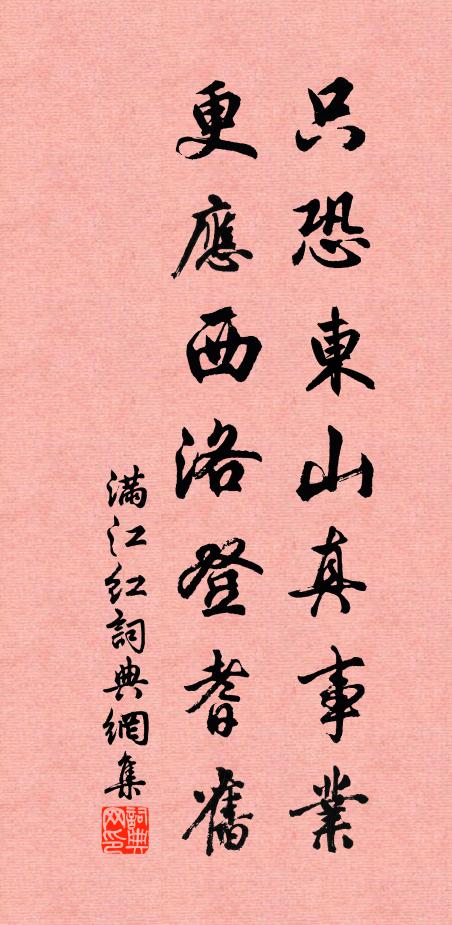 只恐東山真事業
更應西洛登耆舊
滿江紅詞典網集
詞典网印